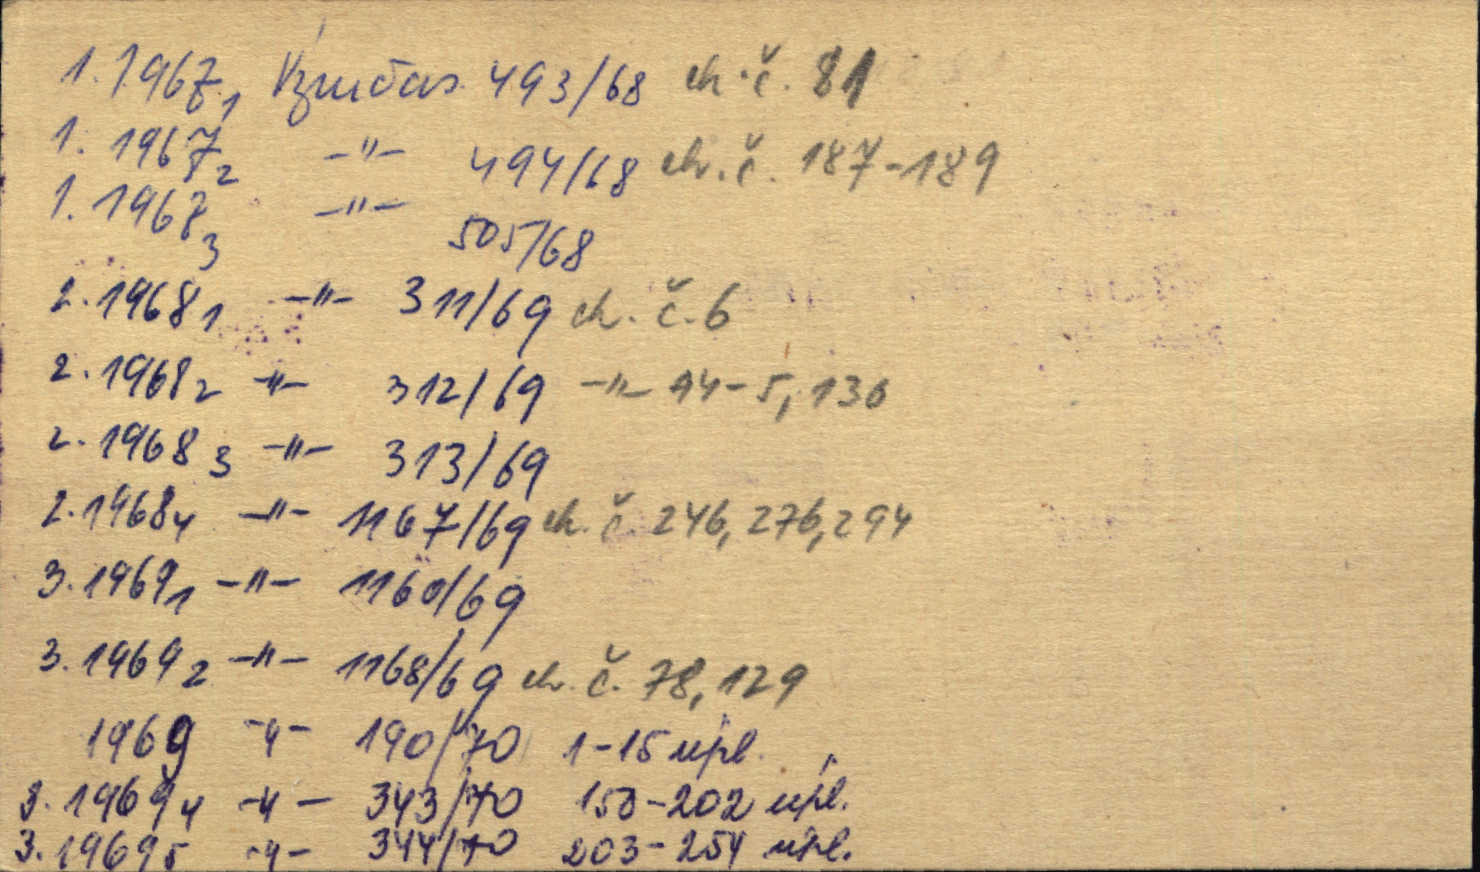 1. 1967₁ 493/68 ch. č. 81
1. 1967₂ -"- 494/68 ch. č. 187-189
1. 1967₃ -"- 505/68
2. 1968₁ -"- 311/69 ch. č. 6
2. 1968₂ -"- 312/69 -"- 94-5, 136
2. 1968₃ -"- 313/69
2. 1968₄ -"- 1167/69 ch. č. 246, 276, 294
3. 1969₁ -"- 1160/69
3. 1969₂ -"- 1168/69 ch. č. 78, 129
1969 -"- 190/70 1-15 úpl.
3. 1969₄ -"- 343/70 153-202 úpl.
3. 1969₅ -"- 344/70 203-254 úpl.